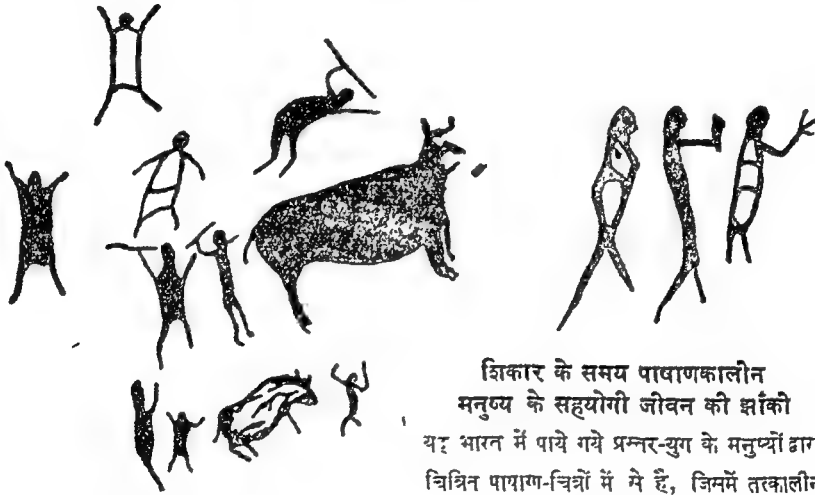 शिकार के समय पाषाणकालीन
मनुष्य के सहयोगी जीवन की झाँकी
यह भारत में पाये गये प्रस्तर-युग के मनुष्यों द्वारा
चित्रित पाषाण-चित्रों में से है, जिसमें तत्कालीन